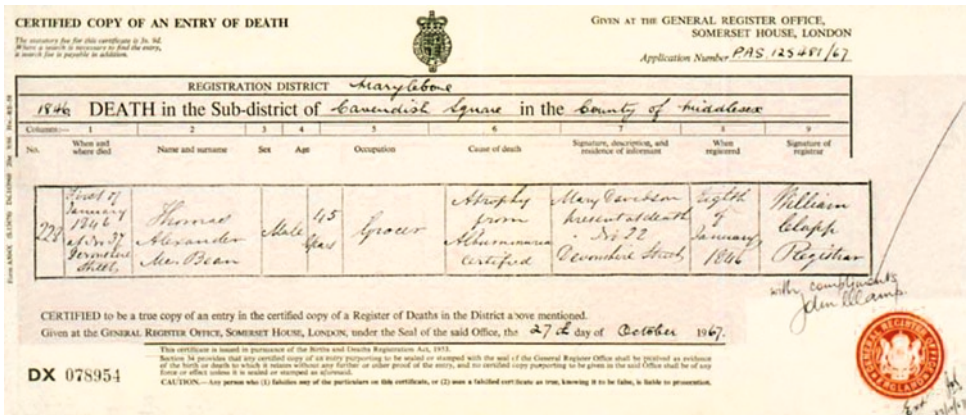 CERTIFIED COPY OF AN ENTRY OF DEATH
The statutory fee for this certificate is 3s. 9d.
Where a search is necessary to find the entry,
a search fee is payable in addition.
GIVEN AT THE GENERAL REGISTER OFFICE,
SOMERSET HOUSE, LONDON
Application Number PAS 125481/67
REGISTRATION DISTRICT Marylebone
1846 DEATH in the Sub-district of Cavendish Square in the County of Middlesex
Columns:— 1 2 3 4 5 6 7 8 9
No. When and where died Name and surname Sex Age Occupation Cause of death Signature, description, and residence of informant When registered Signature of registrar
228
First of
January
1846
at No 37
Devonshire
Street
Thomas
Alexander
Mc. Bean
Male
45
Years
Grocer
Atrophy
from
Albuminuria
Certified
Mary Davidson
Present at death
No 22
Devonshire Street
Eighth
of
January
1846
William
Clapp
Registrar
with compliments
CERTIFIED to be a true copy of an entry in the certified copy of a Register of Deaths in the District above mentioned.
Given at the GENERAL REGISTER OFFICE, SOMERSET HOUSE, LONDON, under the Seal of the said Office, the 27th day of October 1967.
DX 078954
This certificate is issued in pursuance of the Births and Deaths Registration Act, 1953.
Section 34 provides that any certified copy of an entry purporting to be sealed or stamped with the seal of the General Register Office shall be received as evidence
of the birth or death to which it relates without any further or other proof of the entry, and no certified copy purporting to be given in the said Office shall be of any
force or effect unless it is sealed or stamped as aforesaid.
CAUTION.—Any person who (1) falsifies any of the particulars on this certificate, or (2) uses a falsified certificate as true, knowing it to be false, is liable to prosecution.
GENERAL REGISTER OFFICE
ENGLAND